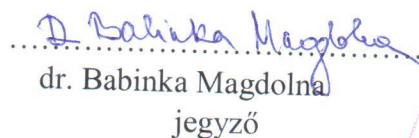 D Babinka Magdolna
dr. Babinka Magdolna
jegyző